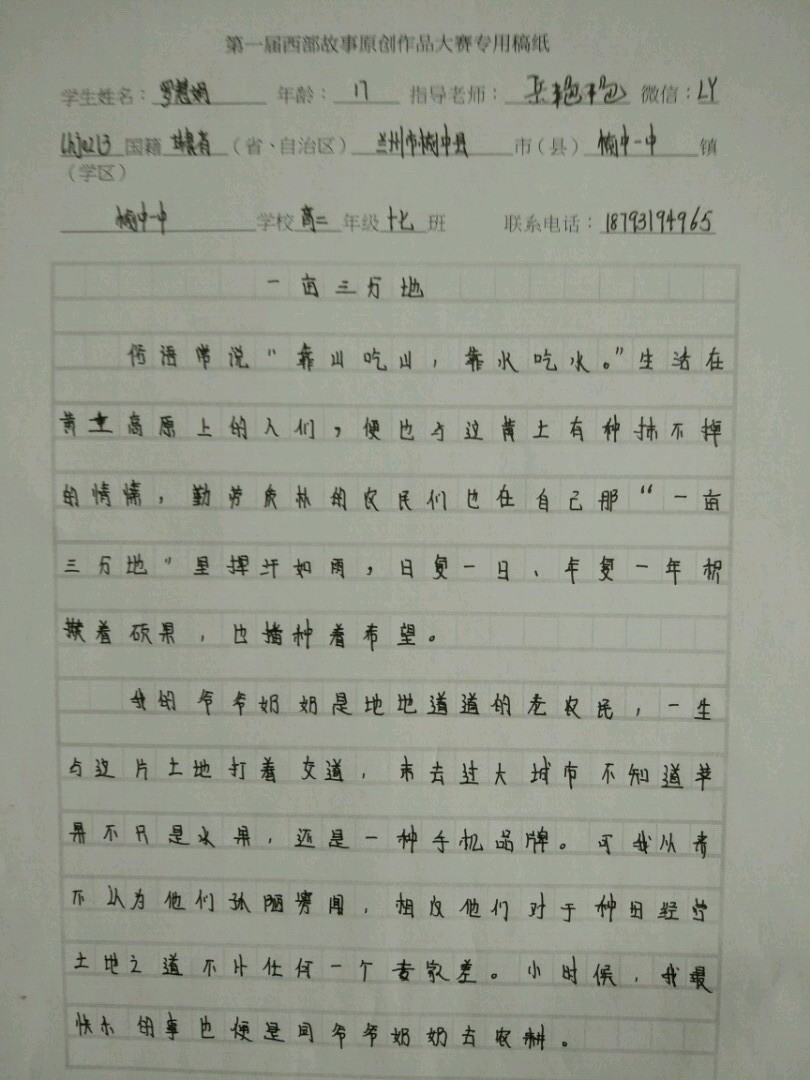 第一届西部故事原创作品大赛专用稿纸
学生姓名：罗慧娟 年龄：17 指导老师： 微信：LY
Lhj0213 国籍 甘肃省 （省、自治区） 兰州市榆中县 市（县） 榆中一中 镇
（学区）
榆中一中 学校 高二 年级 十七 班 联系电话：18793194965
一亩三分地
俗语常说“靠山吃山，靠水吃水。”生活在
黄土高原上的人们，便也与这黄土有种抹不掉
的情愫，勤劳质朴的农民们也在自己那“一亩
三分地”里挥汗如雨，日复一日、年复一年积
攒着硕果，也播种着希望。
我的爷爷奶奶是地地道道的老农民，一生
与这片土地打着交道，未去过大城市不知道苹
果不只是水果，还是一种手机品牌。可我从来
不认为他们孤陋寡闻，相反他们对于种田经营
土地之道不比任何一个专家差。小时候，我最
快乐的事也便是同爷爷奶奶去农耕。